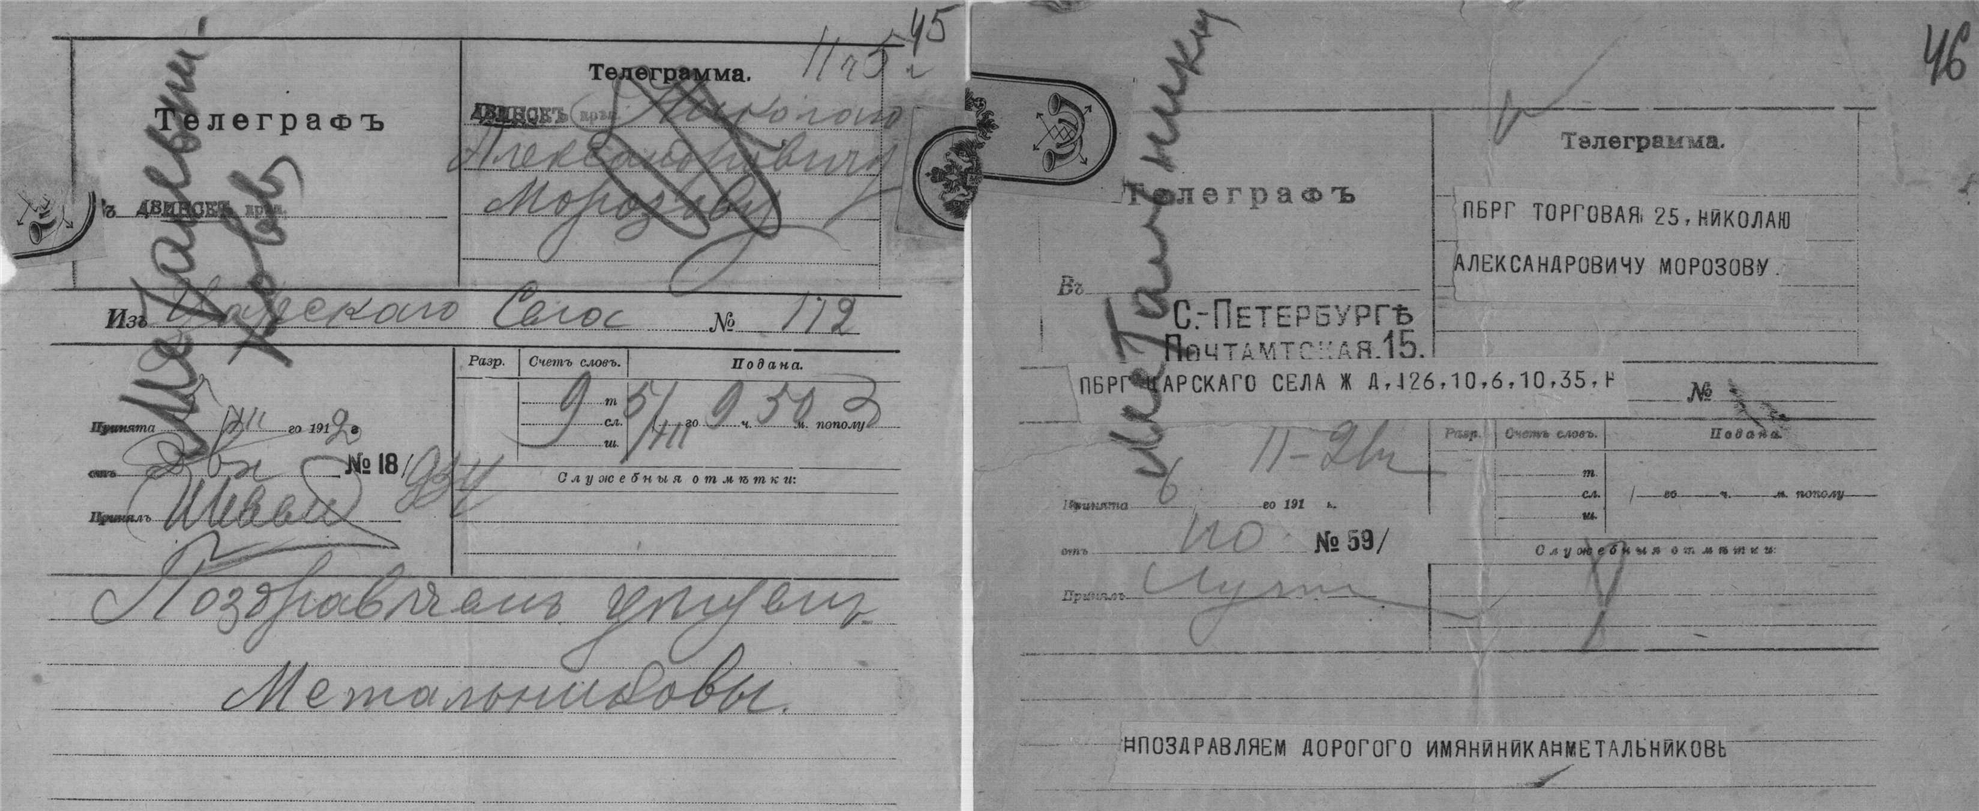 45
11 ч 5
Телеграфъ
Телеграмма.
ДВИНСКЪ крѣп. Николаю
Александровичу
Морозову
ъ ДВИНСКЪ крѣп.
Метальни-
ковъ
Изъ Царскаго Села № 172
Разр. Счетъ словъ. Подана.
9 т. 5/XII го 9 ч. 50 м. пополу
сл.
ш.
Принята /XII го 1912 г.
отъ № 18/934
Служебныя отмѣтки:
Принялъ
Поздравляемъ целуемъ
Метальниковы.
46
Метальники
Телеграфъ
Телеграмма.
ПБРГ ТОРГОВАЯ 25, НИКОЛАЮ
АЛЕКСАНДРОВИЧУ МОРОЗОВУ.
Въ
С.-ПЕТЕРБУРГѢ
ПОЧТАМТСКАЯ.15.
ПБРГ ЦАРСКАГО СЕЛА Ж Д, 126,10,6,10,35, Н
№
Разр. Счетъ словъ. Подана.
т.
сл. / го ч. м. пополу
ш.
Принята 6 го 191 г.
отъ № 59/
Служебныя отмѣтки:
Принялъ
НПОЗДРАВЛЯЕМ ДОРОГОГО ИМЯНИНИКАНМЕТАЛЬНИКОВЫ